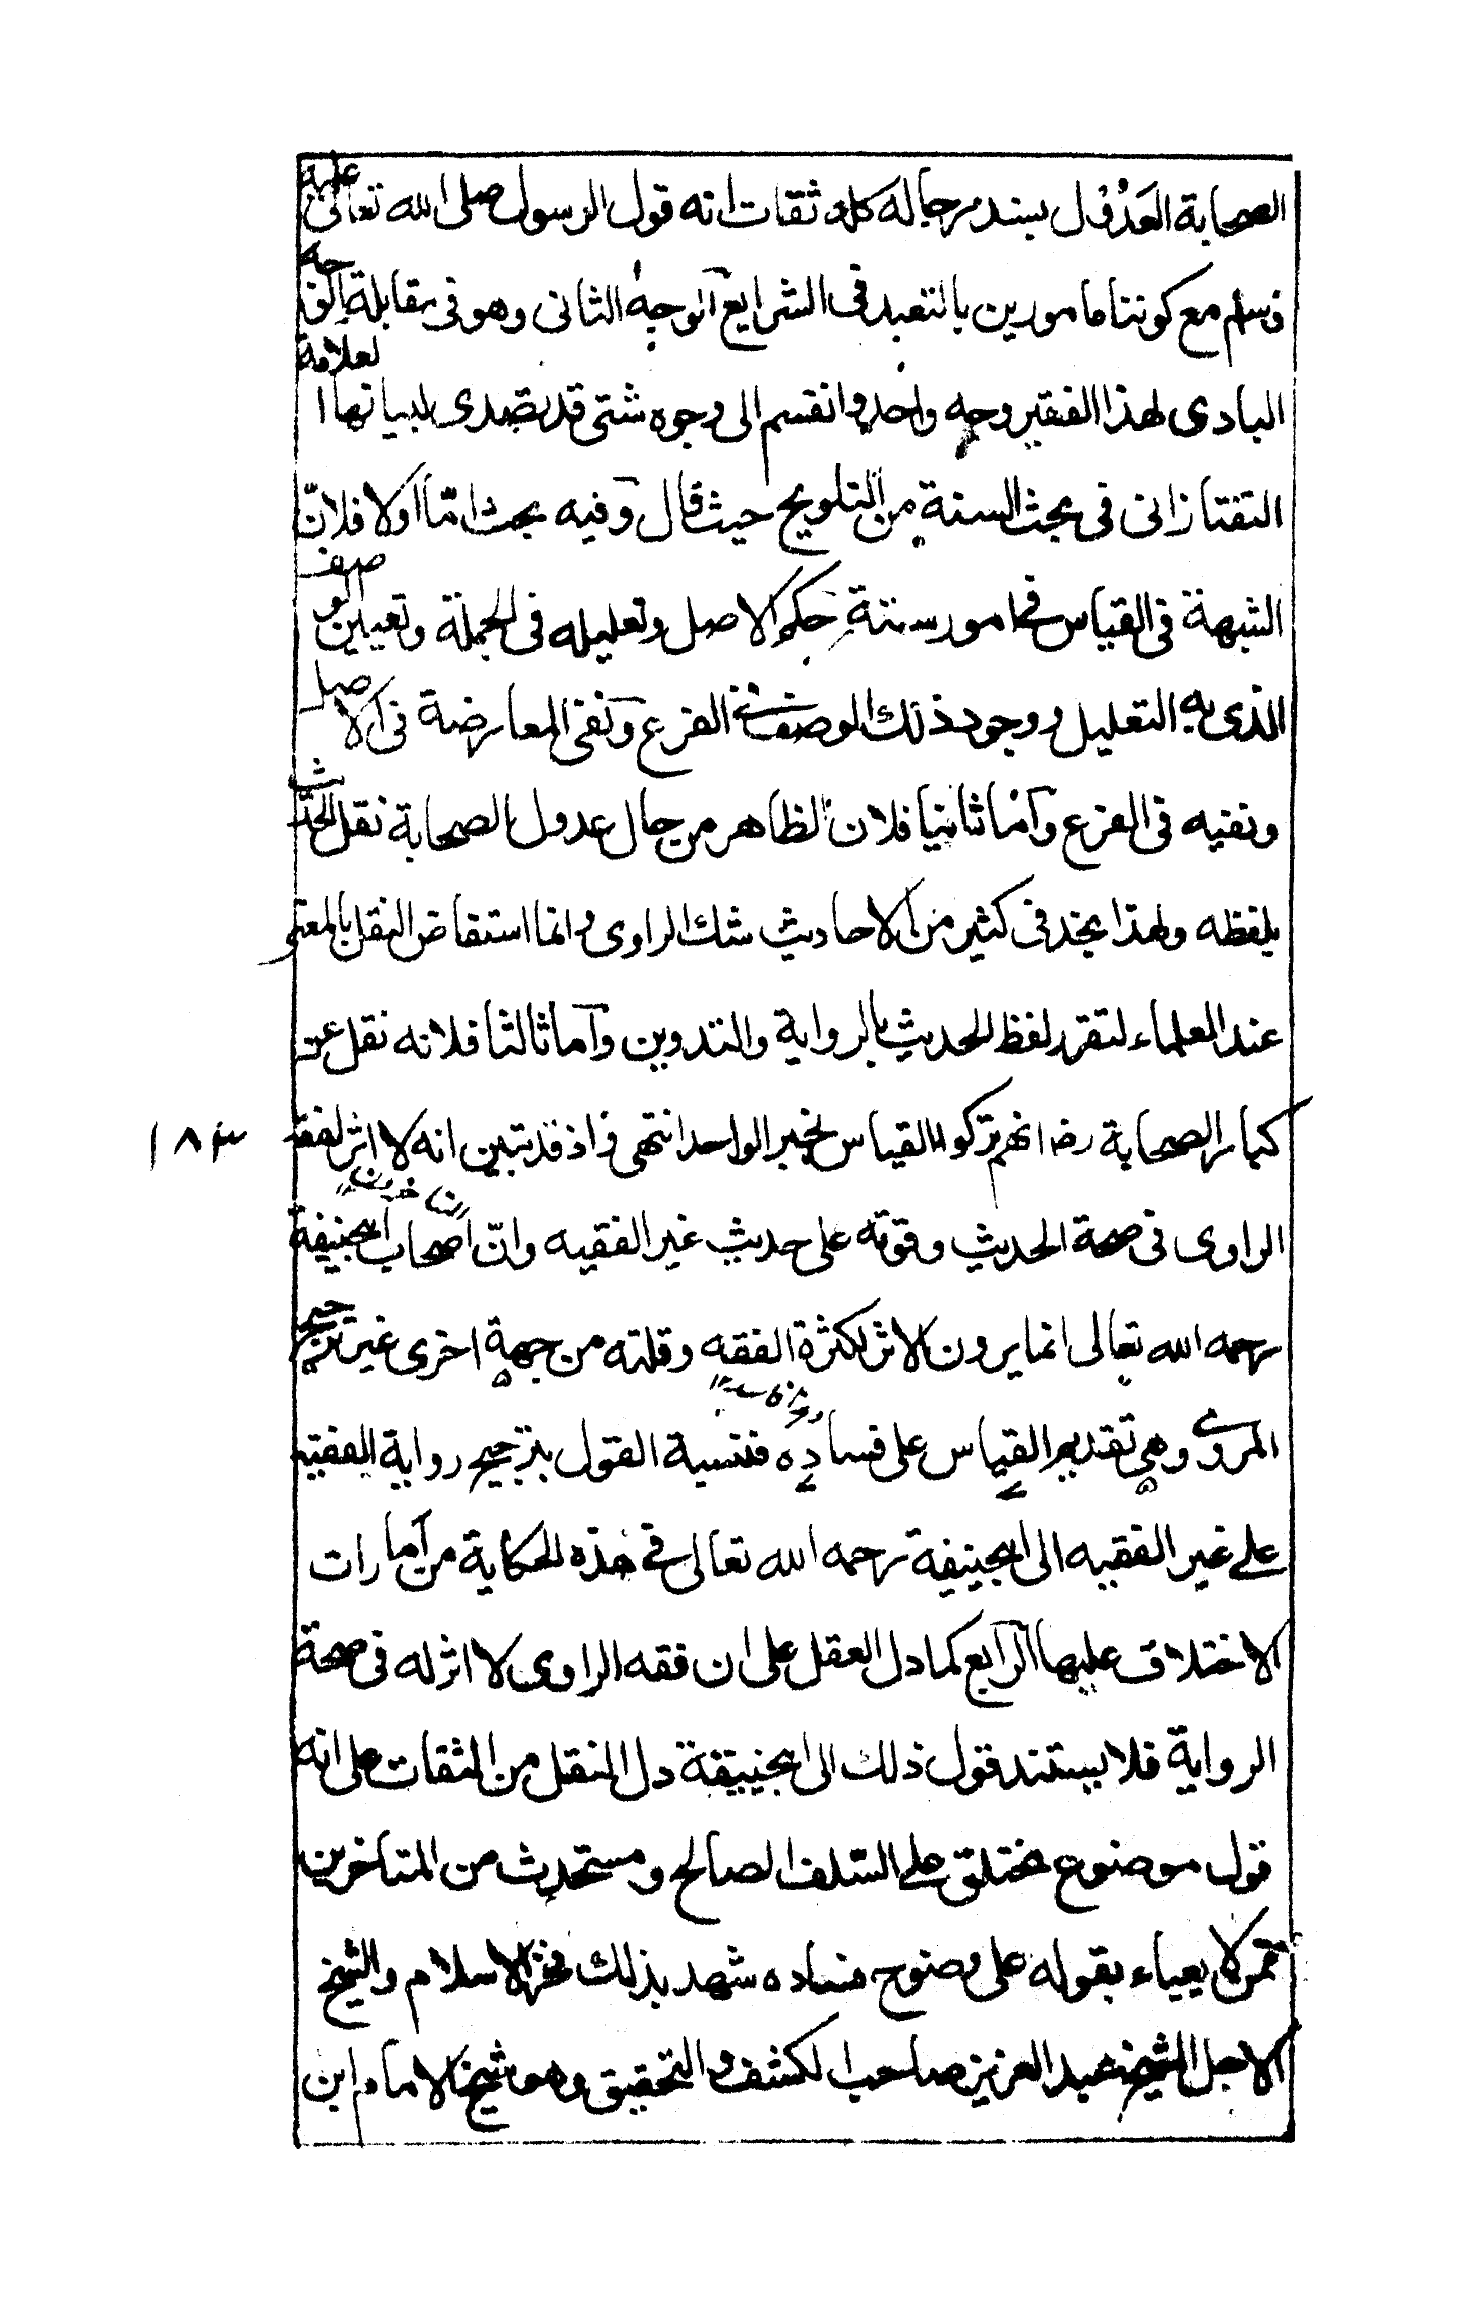 الصحابة العَدُوْل بسند رجاله كله ثقات انه قول الرسول صلى الله تعالى عليه
وسلم مع كوننا مامورين بالتعبد فى الشرايع الوجه الثانى وهو فى مقابلة الوجه
البادى لهذا الفقير وجه واحد وانقسم الى وجوه شتى قد تصدى لبيانها العلامة
التفتازانى فى بحث السنة من التلويح حيث قال وفيه بحث امّا اولا فلانّ
الشبهة فى القياس فى امور ستة حكم الاصل وتعليله فى الجملة وتعيين الوصف
الذى به التعليل ووجود ذلك الوصف فى الفرع ونفى المعارضة فى الاصل
ونفيه فى الفرع وآما ثانيا فلان الظاهر من حال عدول الصحابة نقل الحديث
بلفظه ولهذا يجد فى كثير من الاحاديث شك الراوى وانما استفاض النقل بالمعنى
عند العلماء لتقرر لفظ الحديث بالرواية والتدوين وآما ثالثا فلانه نقل عن
كبار الصحابة رضـ انهم تركوا القياس لخبر الواحد انتهى واذ قد تبين انه لا اثر لفقه
١٨٣
الراوى فى صحة الحديث وقوته على حديث غير الفقيه وانّ اصحاب ابيحنيفة
رحمه الله تعالى انما يرون الاثر لكثرة الفقه وقلته من جهة اخرى غير ترجيح
المروى وهى تقديم القياس على فساده فنسبة القول بترجيح رواية الفقيه
على غير الفقيه الى ابيحنيفة رحمه الله تعالى فى هذه الحكاية من آمارات
الاختلاق عليها الرابع كما دل العقل على ان فقه الراوى لا اثر له فى صحة
الرواية فلا يستند قول ذلك الى ابيحنيفة دل النقل من الثقات على انه
قول موضوع مختلق على السّلف الصالح ومستحدث من المتاخرين
ممن لا يعباء بقوله على وضوح فساده شهد بذلك فخر الاسلام والشيخ
الاجل الشيخ عبد العزيز صاحب الكشف والتحقيق وهو شيخ الامام ابن